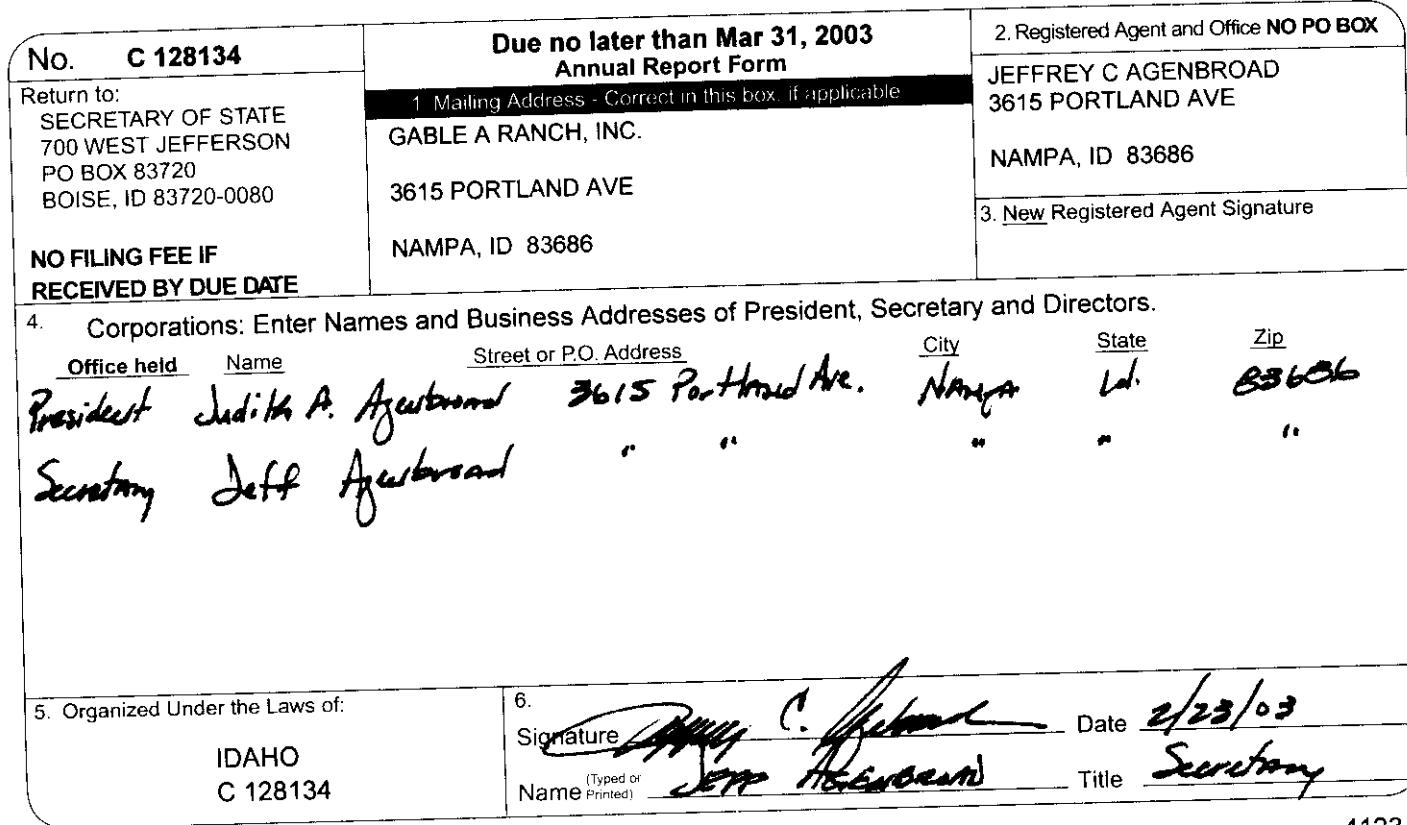 No. C 128134
Return to:
SECRETARY OF STATE
700 WEST JEFFERSON
PO BOX 83720
BOISE, ID 83720-0080
NO FILING FEE IF
RECEIVED BY DUE DATE
Due no later than Mar 31, 2003
Annual Report Form
1 Mailing Address - Correct in this box, if applicable
GABLE A RANCH, INC.
3615 PORTLAND AVE
NAMPA, ID 83686
2. Registered Agent and Office NO PO BOX
JEFFREY C AGENBROAD
3615 PORTLAND AVE
NAMPA, ID 83686
3. New Registered Agent Signature
4. Corporations: Enter Names and Business Addresses of President, Secretary and Directors.
Office held Name Street or P.O. Address City State Zip
President Judith A. Agenbroad 3615 Portland Ave. Nampa Id. 83686
Secretary Jeff Agenbroad " " " " "
5. Organized Under the Laws of:
IDAHO
C 128134
6.
Signature Jeffrey C. Agenbroad Date 2/23/03
Name (Typed or Printed) JEFF AGENBROAD Title Secretary